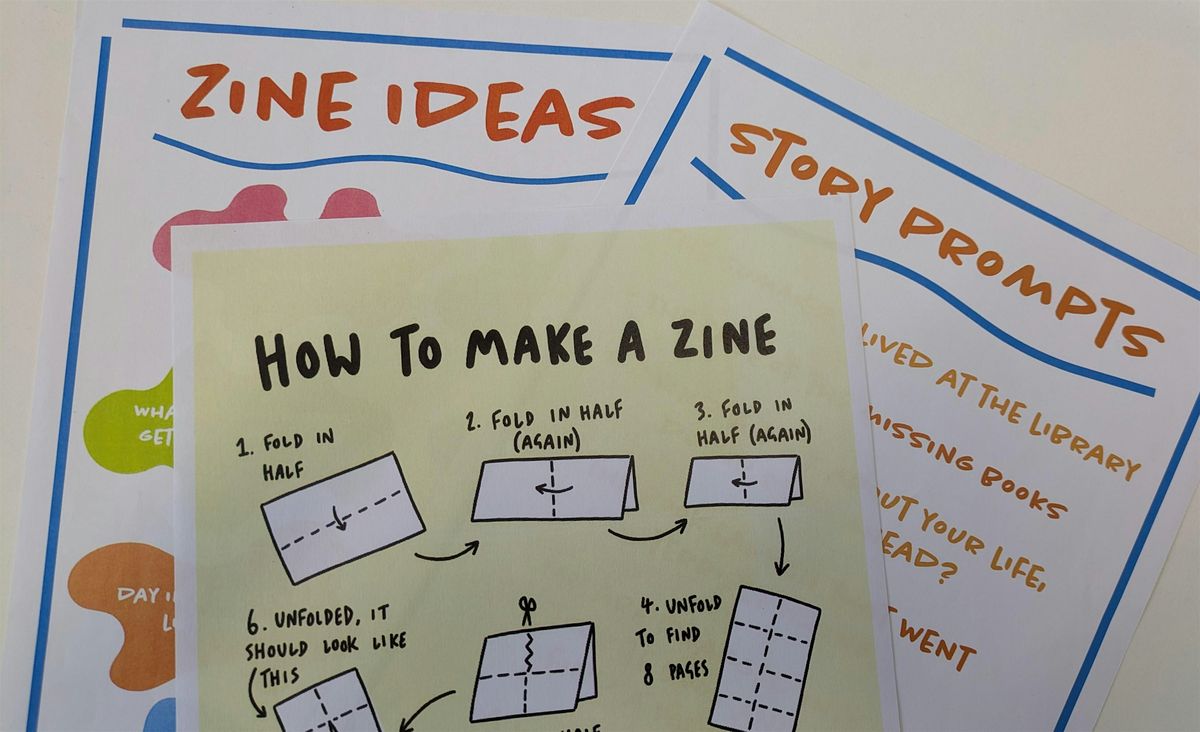 ZINE IDEAS
DAY
STORY PROMPTS
LIVED AT THE LIBRARY
MISSING BOOKS
YOUR LIFE,
WENT
HOW TO MAKE A ZINE
1. FOLD IN
HALF
2. FOLD IN HALF
(AGAIN)
3. FOLD IN
HALF (AGAIN)
4. UNFOLD
TO FIND
8 PAGES
6. UNFOLDED, IT
SHOULD LOOK LIKE
THIS